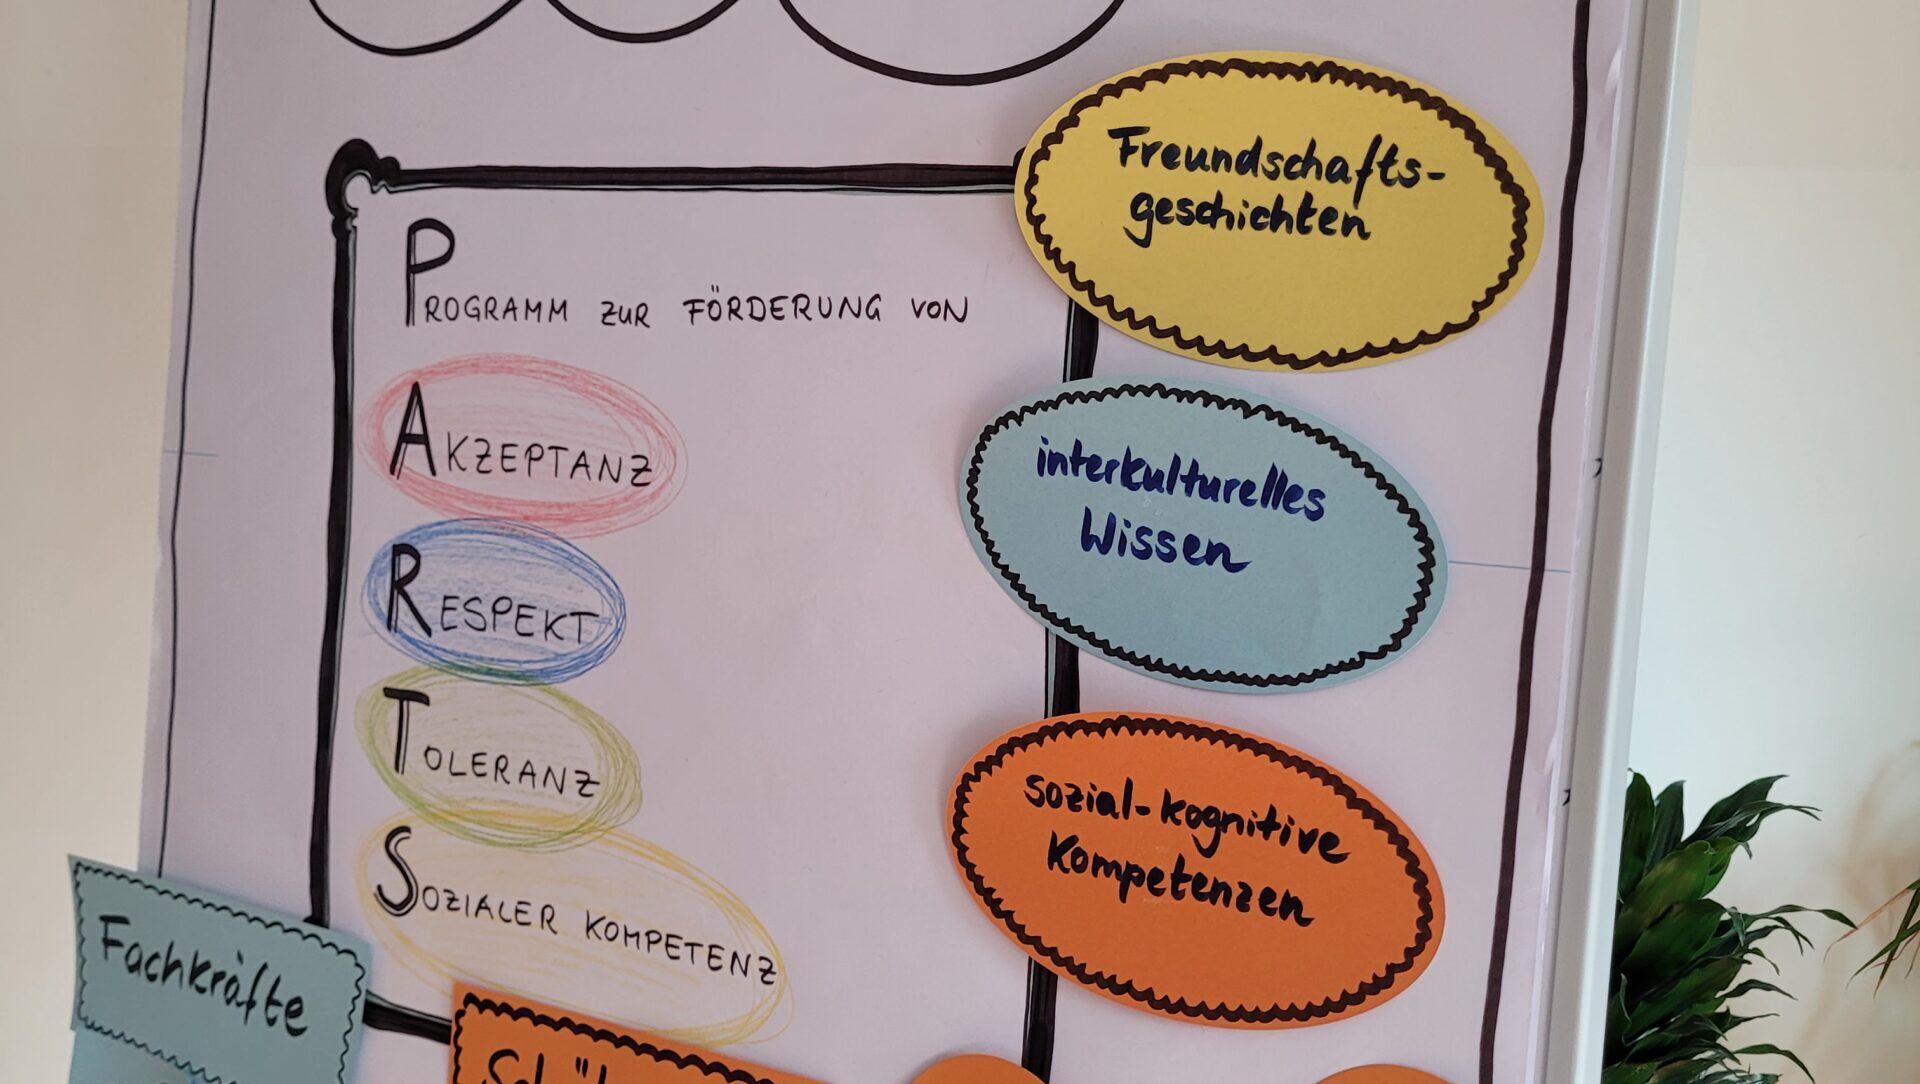 Freundschafts-
geschichten
PROGRAMM ZUR FÖRDERUNG VON
AKZEPTANZ
interkulturelles
Wissen
RESPEKT
TOLERANZ
sozial-kognitive
Kompetenzen
SOZIALER KOMPETENZ
Fachkräfte